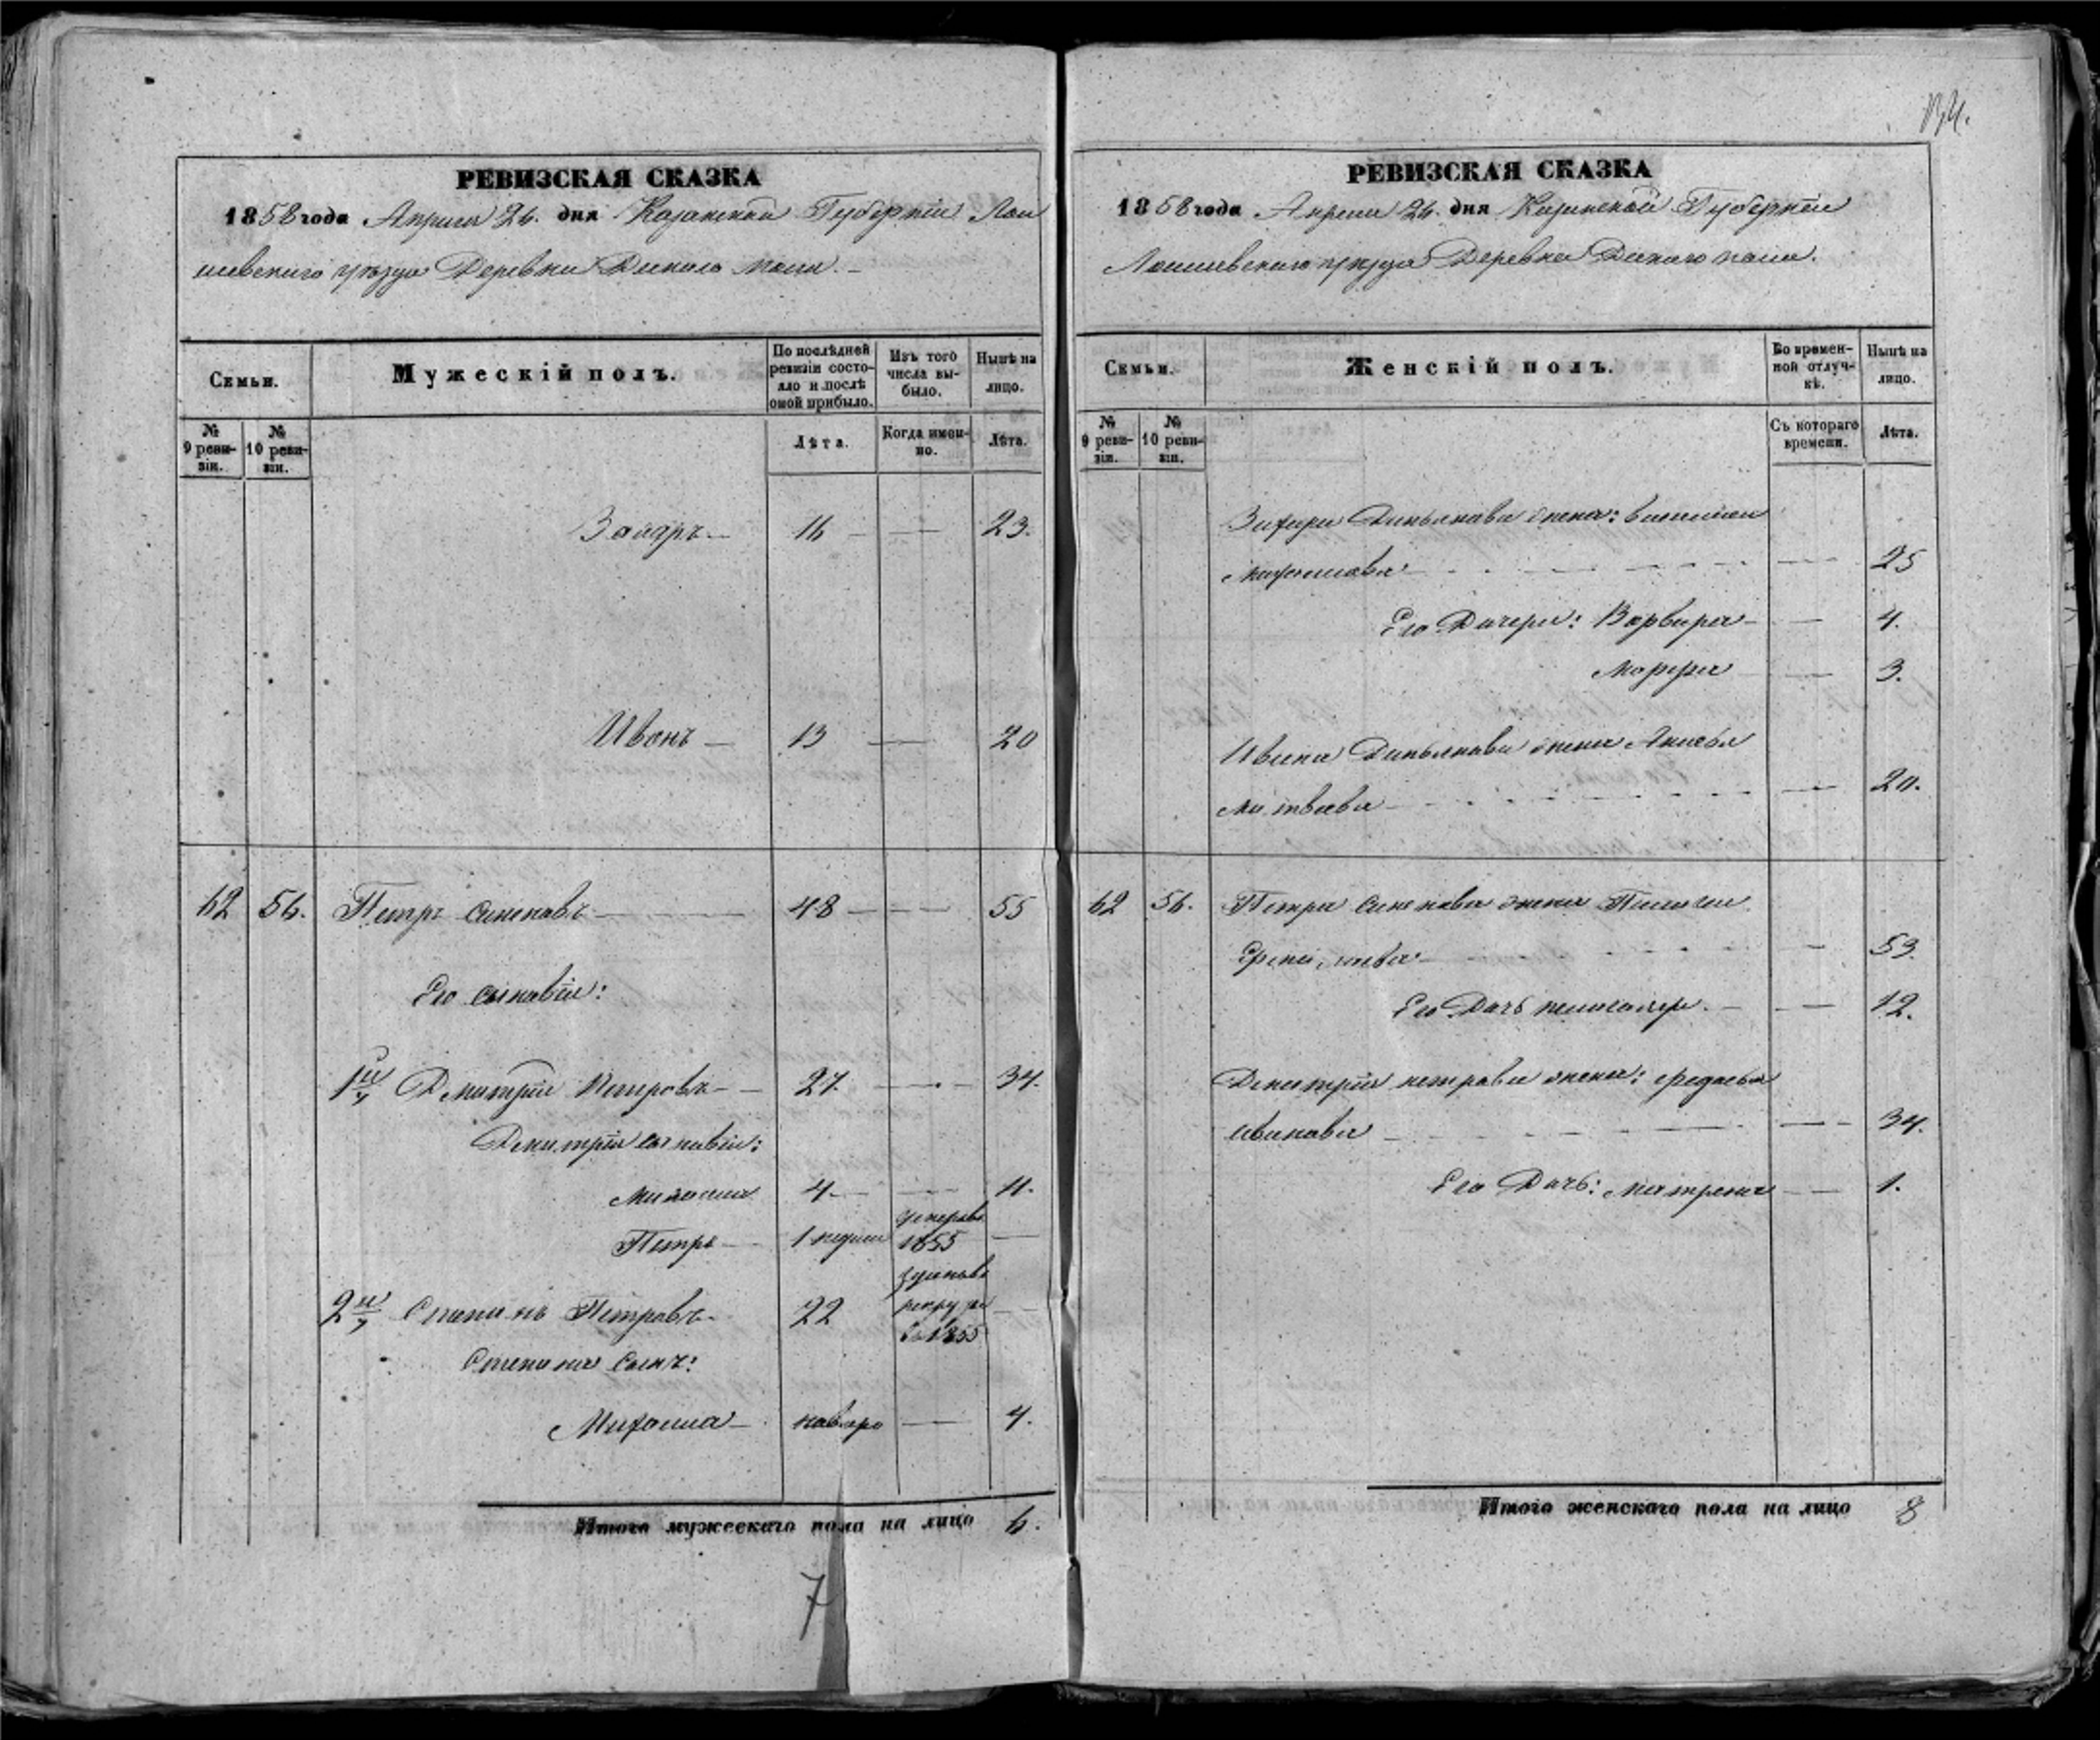 134.
РЕВИЗСКАЯ СКАЗКА
1858 года Апреля 26. дня Казанской Губерніи Лаи
шевскаго уѣзда Деревни Дикаго поля.
Семьи.
Мужескій полъ.
По послѣдней ревизіи состояло и послѣ оной прибыло.
Изъ того числа выбыло.
Нынѣ на лицо.
№ 9 ревизіи.
№ 10 ревизіи.
Лѣта.
Когда именно.
Лѣта.
16 — 23.
Иванъ — 13 — 20
62 56. Петръ 48 — 55
Его сыновьи:
1й Дмитрій Петровъ 27. — 34.
Дмитрія сыновьи:
4 — 11.
Петръ 1 недели умеръ въ 1855 —
2й Степанъ Петровъ 22 рекруты въ 1855 —
Степана сынъ:
Михайла новоро — 4.
Итого мужескаго пола на лицо 6.
7
РЕВИЗСКАЯ СКАЗКА
1858 года Апреля 26. дня Казанской Губерніи
Лаишевскаго уѣзда Деревни Дикаго поля.
Семьи.
Женскій полъ.
Во временной отлучкѣ.
Нынѣ на лицо.
№ 9 ревизіи.
№ 10 ревизіи.
Съ котораго времени.
Лѣта.
Захара жена:
25
Его Дочери: Варвара — 4.
Марфа — 3.
Ивана жена
Матвева — 20.
62 56. Петра жена
53
Его Дочь — 12.
Дмитрія петрова жена:
иванова — 34.
Его Дочь: матрена — 1.
Итого женскаго пола на лицо 8